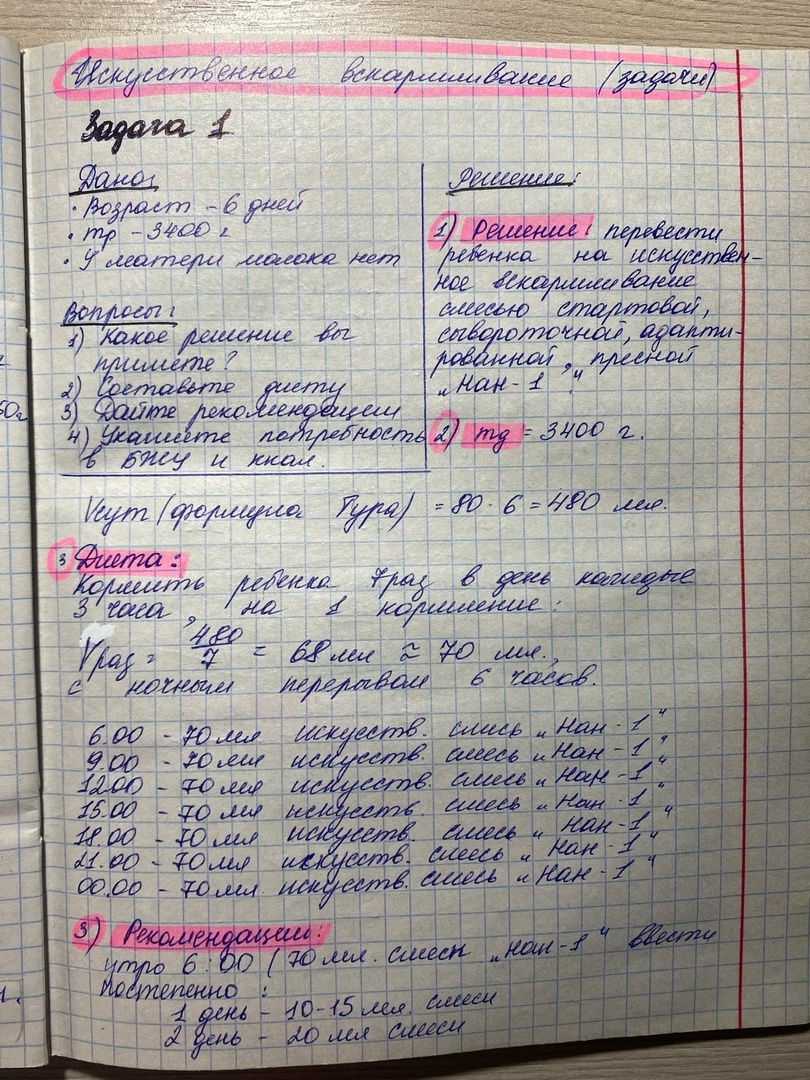 Искусственное вскармливание (задачи)
Задача 1
Дано:
• Возраст – 6 дней
• mр – 3400 г
• У матери молока нет
Вопросы:
1) Какое решение вы
примете?
2) Составьте диету
3) Дайте рекомендации
4) Укажите потребность
в БЖУ и ккал.
Решение:
1) Решение: перевести
ребенка на искусствен-
ное вскармливание
смесью стартовой,
сывороточной, адапти-
рованной, пресной
„Нан-1"
2) mд = 3400 г.
Vсут (формула Тура) = 80 · 6 = 480 мл.
3 Диета:
Кормить ребенка 7 раз в день каждые
3 часа, на 1 кормление:
Vраз = 480/7 = 68 мл ≈ 70 мл.,
с ночным перерывом 6 часов.
6.00 – 70 мл искусств. смесь „Нан-1"
9.00 – 70 мл искусств. смесь „Нан-1"
12.00 – 70 мл искусств. смесь „Нан-1"
15.00 – 70 мл искусств. смесь „Нан-1"
18.00 – 70 мл искусств. смесь „Нан-1"
21.00 – 70 мл искусств. смесь „Нан-1"
00.00 – 70 мл искусств. смесь „Нан-1"
3) Рекомендации:
утро 6:00 (70 мл. смеси „Нан-1" ввести
постепенно:
1 день – 10-15 мл. смеси
2 день – 20 мл смеси